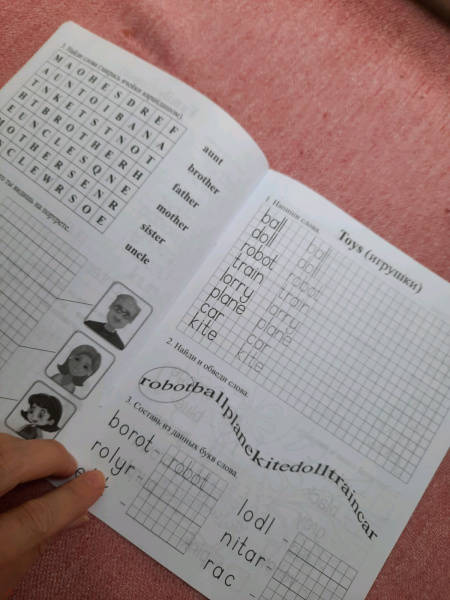 3. Найди слова (закрась ячейки карандашом).
M A O H E S D R E F
A U N T O I B A N A
N K E T S T N O T
H T B R O T H E R H
E U N C L E S Q N E
M O T H E R S E N R
C L E W R S O E
aunt
brother
father
mother
sister
uncle
ты видишь на портрете.
Toys (игрушки)
1. Напиши слова.
ball ball
doll doll
robot robot
train train
lorry lorry
plane plane
car car
kite kite
2. Найди и обведи слова.
robotballplanekitedolltraincar
3. Составь из данных букв слова.
borot - robot
rolyr -
lodl -
nitar -
rac -